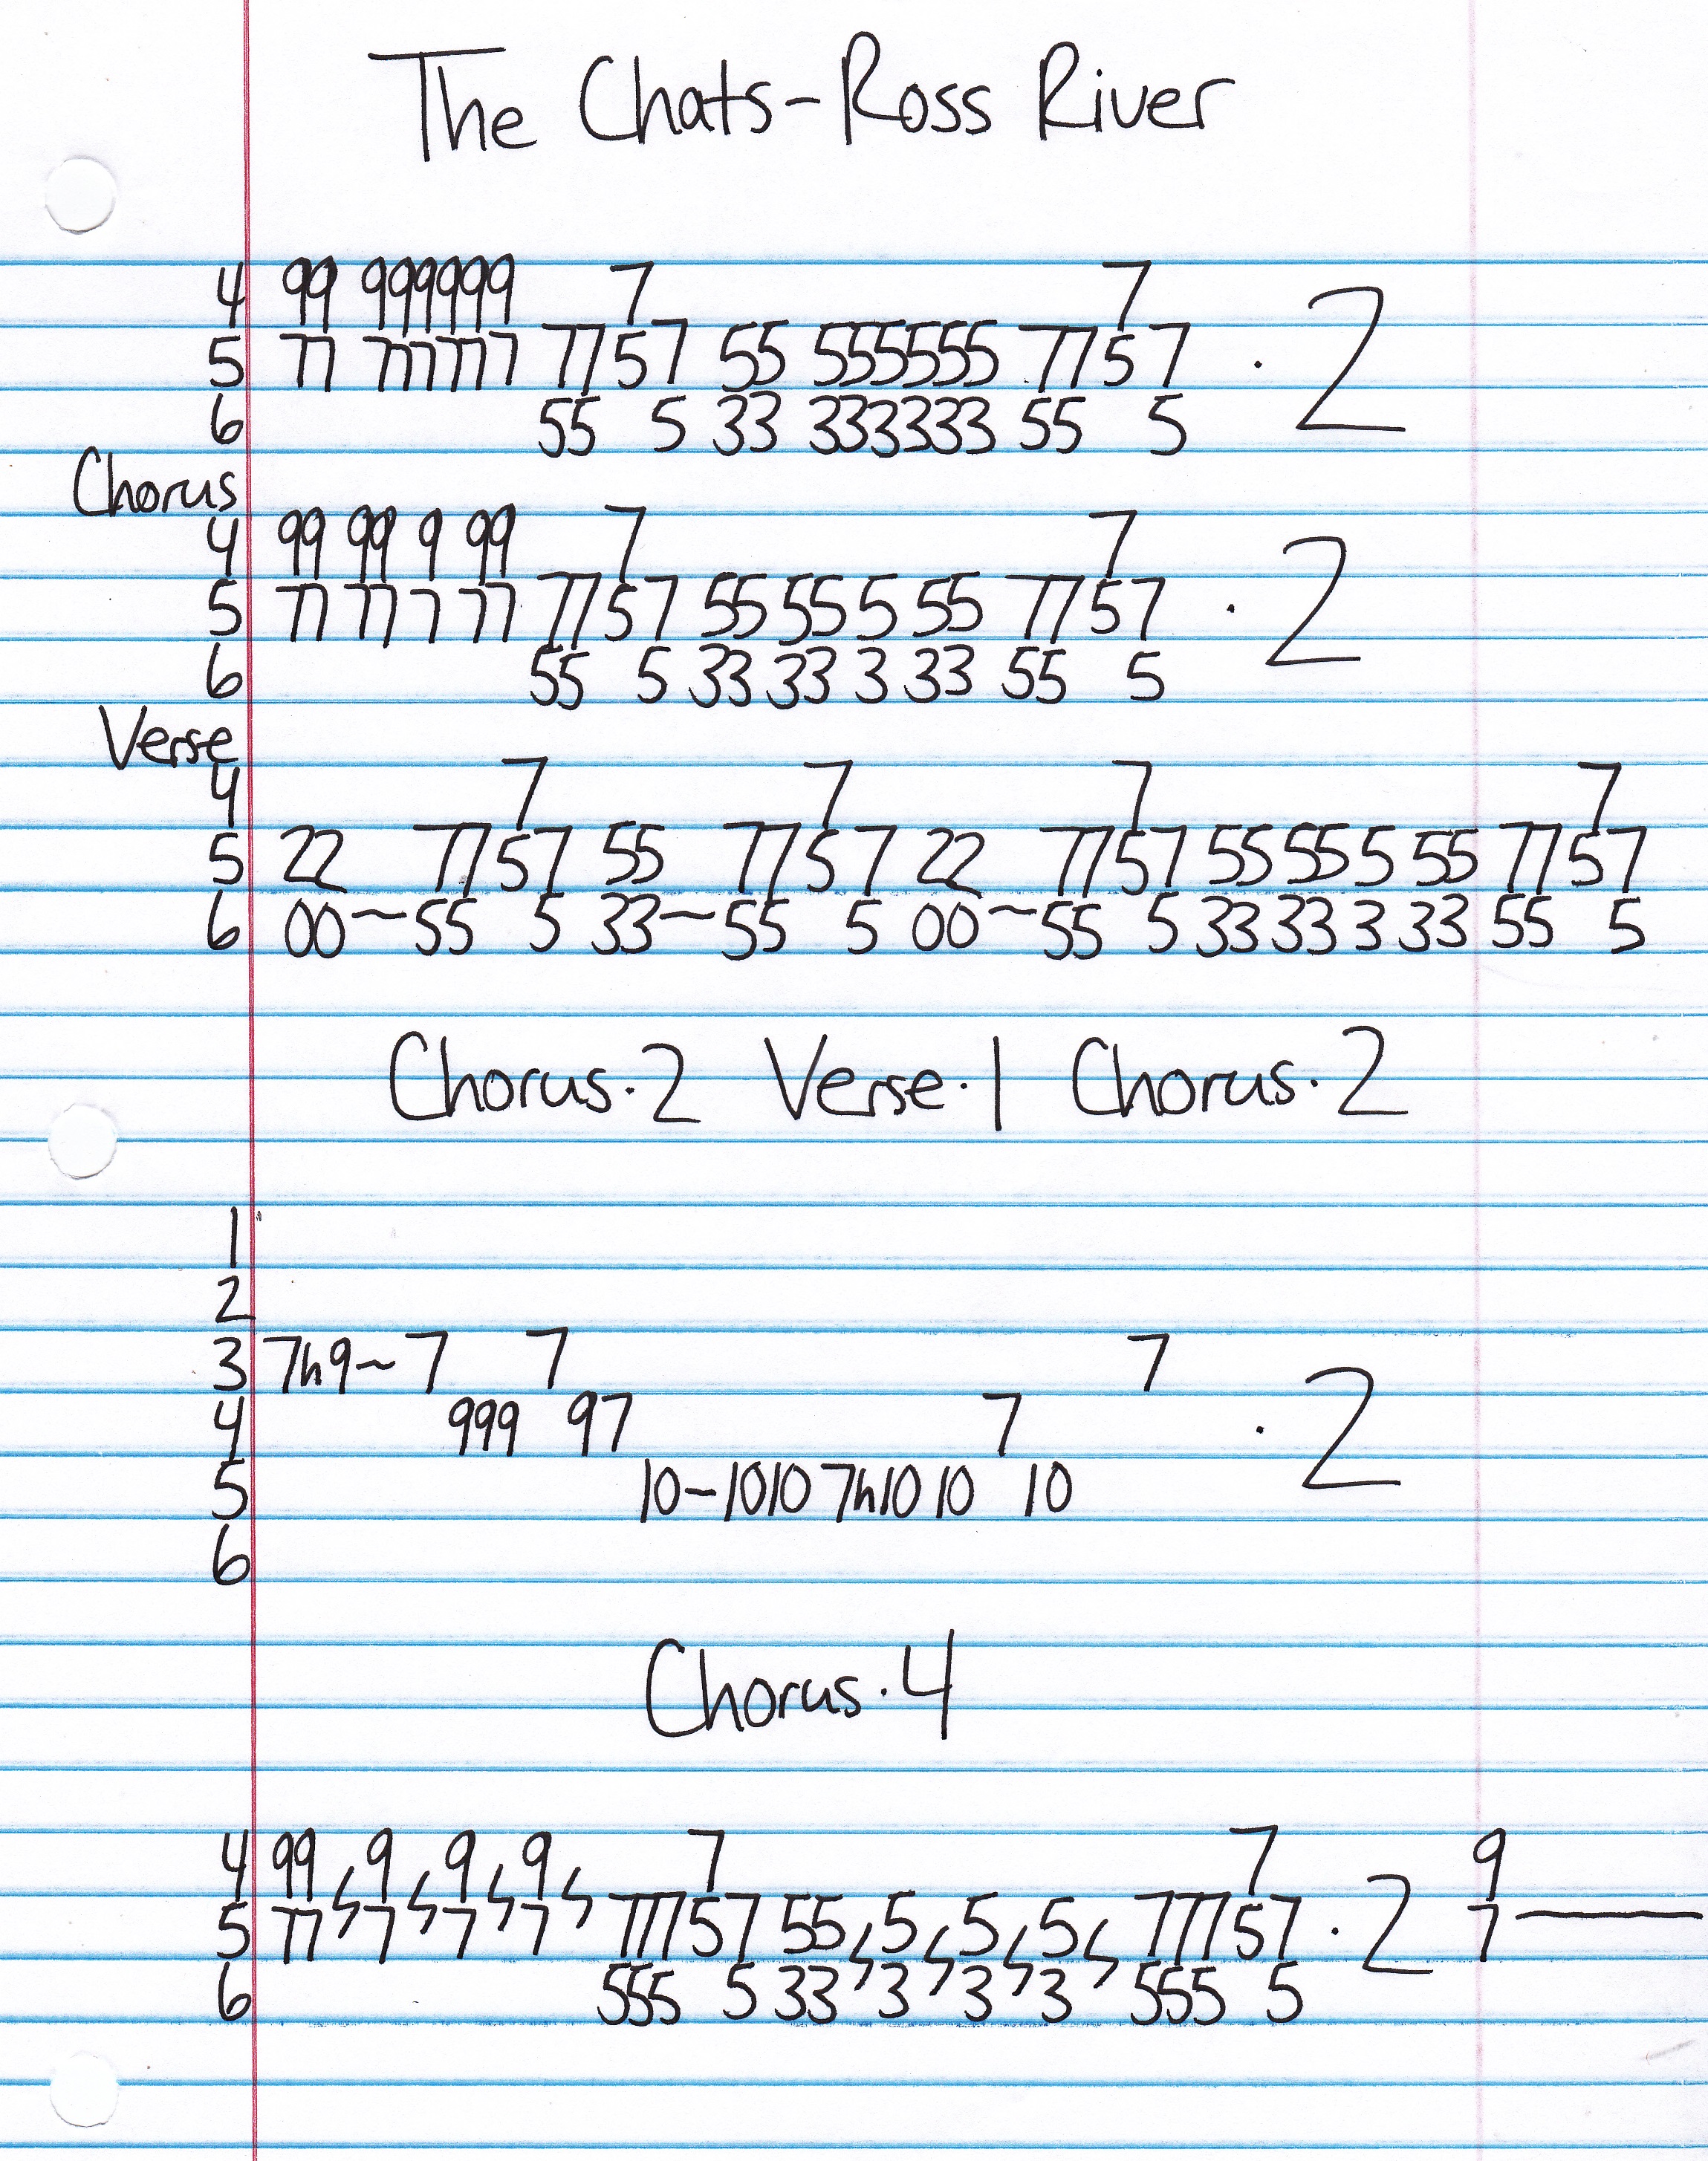 The Chats-Ross River
4 99 999999 7 7
5 77 777777 77 5 7 55 555555 77 5 7 · 2
6 55 5 33 333333 55 5
Chorus
4 99 99 9 99 7 7
5 77 77 7 77 77 5 7 55 55 5 55 77 5 7 · 2
6 55 5 33 33 3 33 55 5
Verse
4 7 7 7 7
5 22 77 5 7 55 77 5 7 22 77 5 7 55 55 5 55 77 5 7
6 00~55 5 33~55 5 00~55 5 33 33 3 33 55 5
Chorus·2 Verse·1 Chorus·2
1
2
3 7h9~7 7 7
4 999 97 7 · 2
5 10~1010 7h10 10 10
6
Chorus·4
4 99 9 9 9 7 7 9
5 77 7 7 7 777 5 7 55 5 5 5 777 5 7 · 2 7—
6 555 5 33 3 3 3 555 5